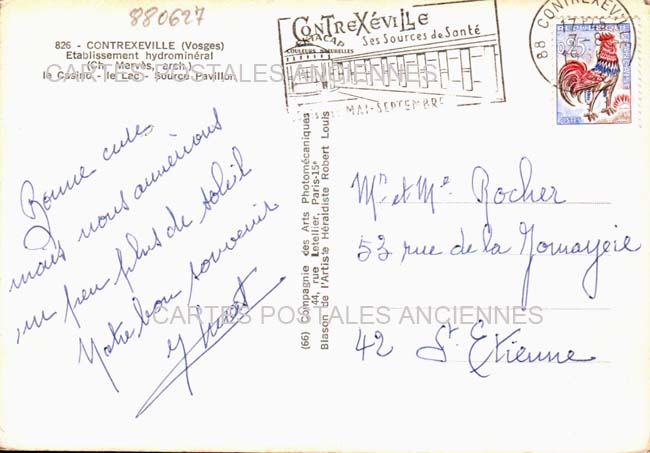 880627
826 - CONTREXEVILLE (Vosges)
Etablissement hydrominéral
(Ch. Mervès, arch.)
le Casino - le Lac - Source Pavillon
CARTES POSTALES ANCIENNES
EKTACAP
COULEURS NATURELLES
CONTREXÉVILLE
Ses Sources de Santé
MAI-SEPTEMBRE
88 - CONTREXEV
0,25
POSTES
Bonne cure
mais nous aimerions
un peu plus de soleil
Notre bon souvenir
(66) Compagnie des Arts Photomécaniques
44, rue Letellier, Paris-15e
Blason de l'Artiste Héraldiste Robert Louis
Mr et Me Rocher
53 rue de la
42 St. Etienne
CARTES POSTALES ANCIENNES